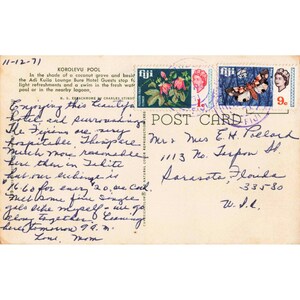 11-12-71
KOROLEVU POOL
In the shade of a coconut grove and
the Adi Kuila Lounge Bure Hotel Guests stop for
light refreshments and a swim in the fresh water
pool or in the nearby lagoon.
Fiji
Fiji
1c
9c
POST CARD
Enjoying this beautiful
hotel and surroundings.
The Fijians are very
hospitable. Things are
much more reasonable
here than Tahiti
but our exchange is
16.60 for every 20.00 con.
Met some fine single
gals like myself - we go
along together. Leaving
here tomorrow 9 A.M.
Love, Mom
Mr & Mrs E H
1113 No. Tarpon St
Sarasota, Florida
33580
U.S.